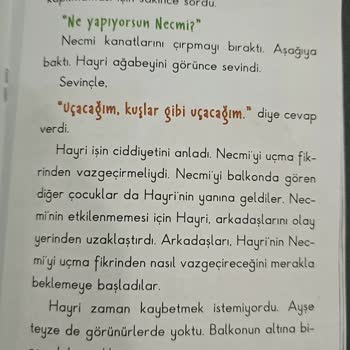 için sakince sordu.
"Ne yapıyorsun Necmi?"
Necmi kanatlarını çırpmayı bıraktı. Aşağıya
baktı. Hayri ağabeyini görünce sevindi.
Sevinçle,
"Uçacağım, kuşlar gibi uçacağım." diye cevap
verdi.
Hayri işin ciddiyetini anladı. Necmi'yi uçma fik-
rinden vazgeçirmeliydi. Necmi'yi balkonda gören
diğer çocuklar da Hayri'nin yanına geldiler. Nec-
mi'nin etkilenmemesi için Hayri, arkadaşlarını olay
yerinden uzaklaştırdı. Arkadaşları, Hayri'nin Nec-
mi'yi uçma fikrinden nasıl vazgeçireceğini merakla
beklemeye başladılar.
Hayri zaman kaybetmek istemiyordu. Ayşe
teyze de görünürlerde yoktu. Balkonun altına bi-